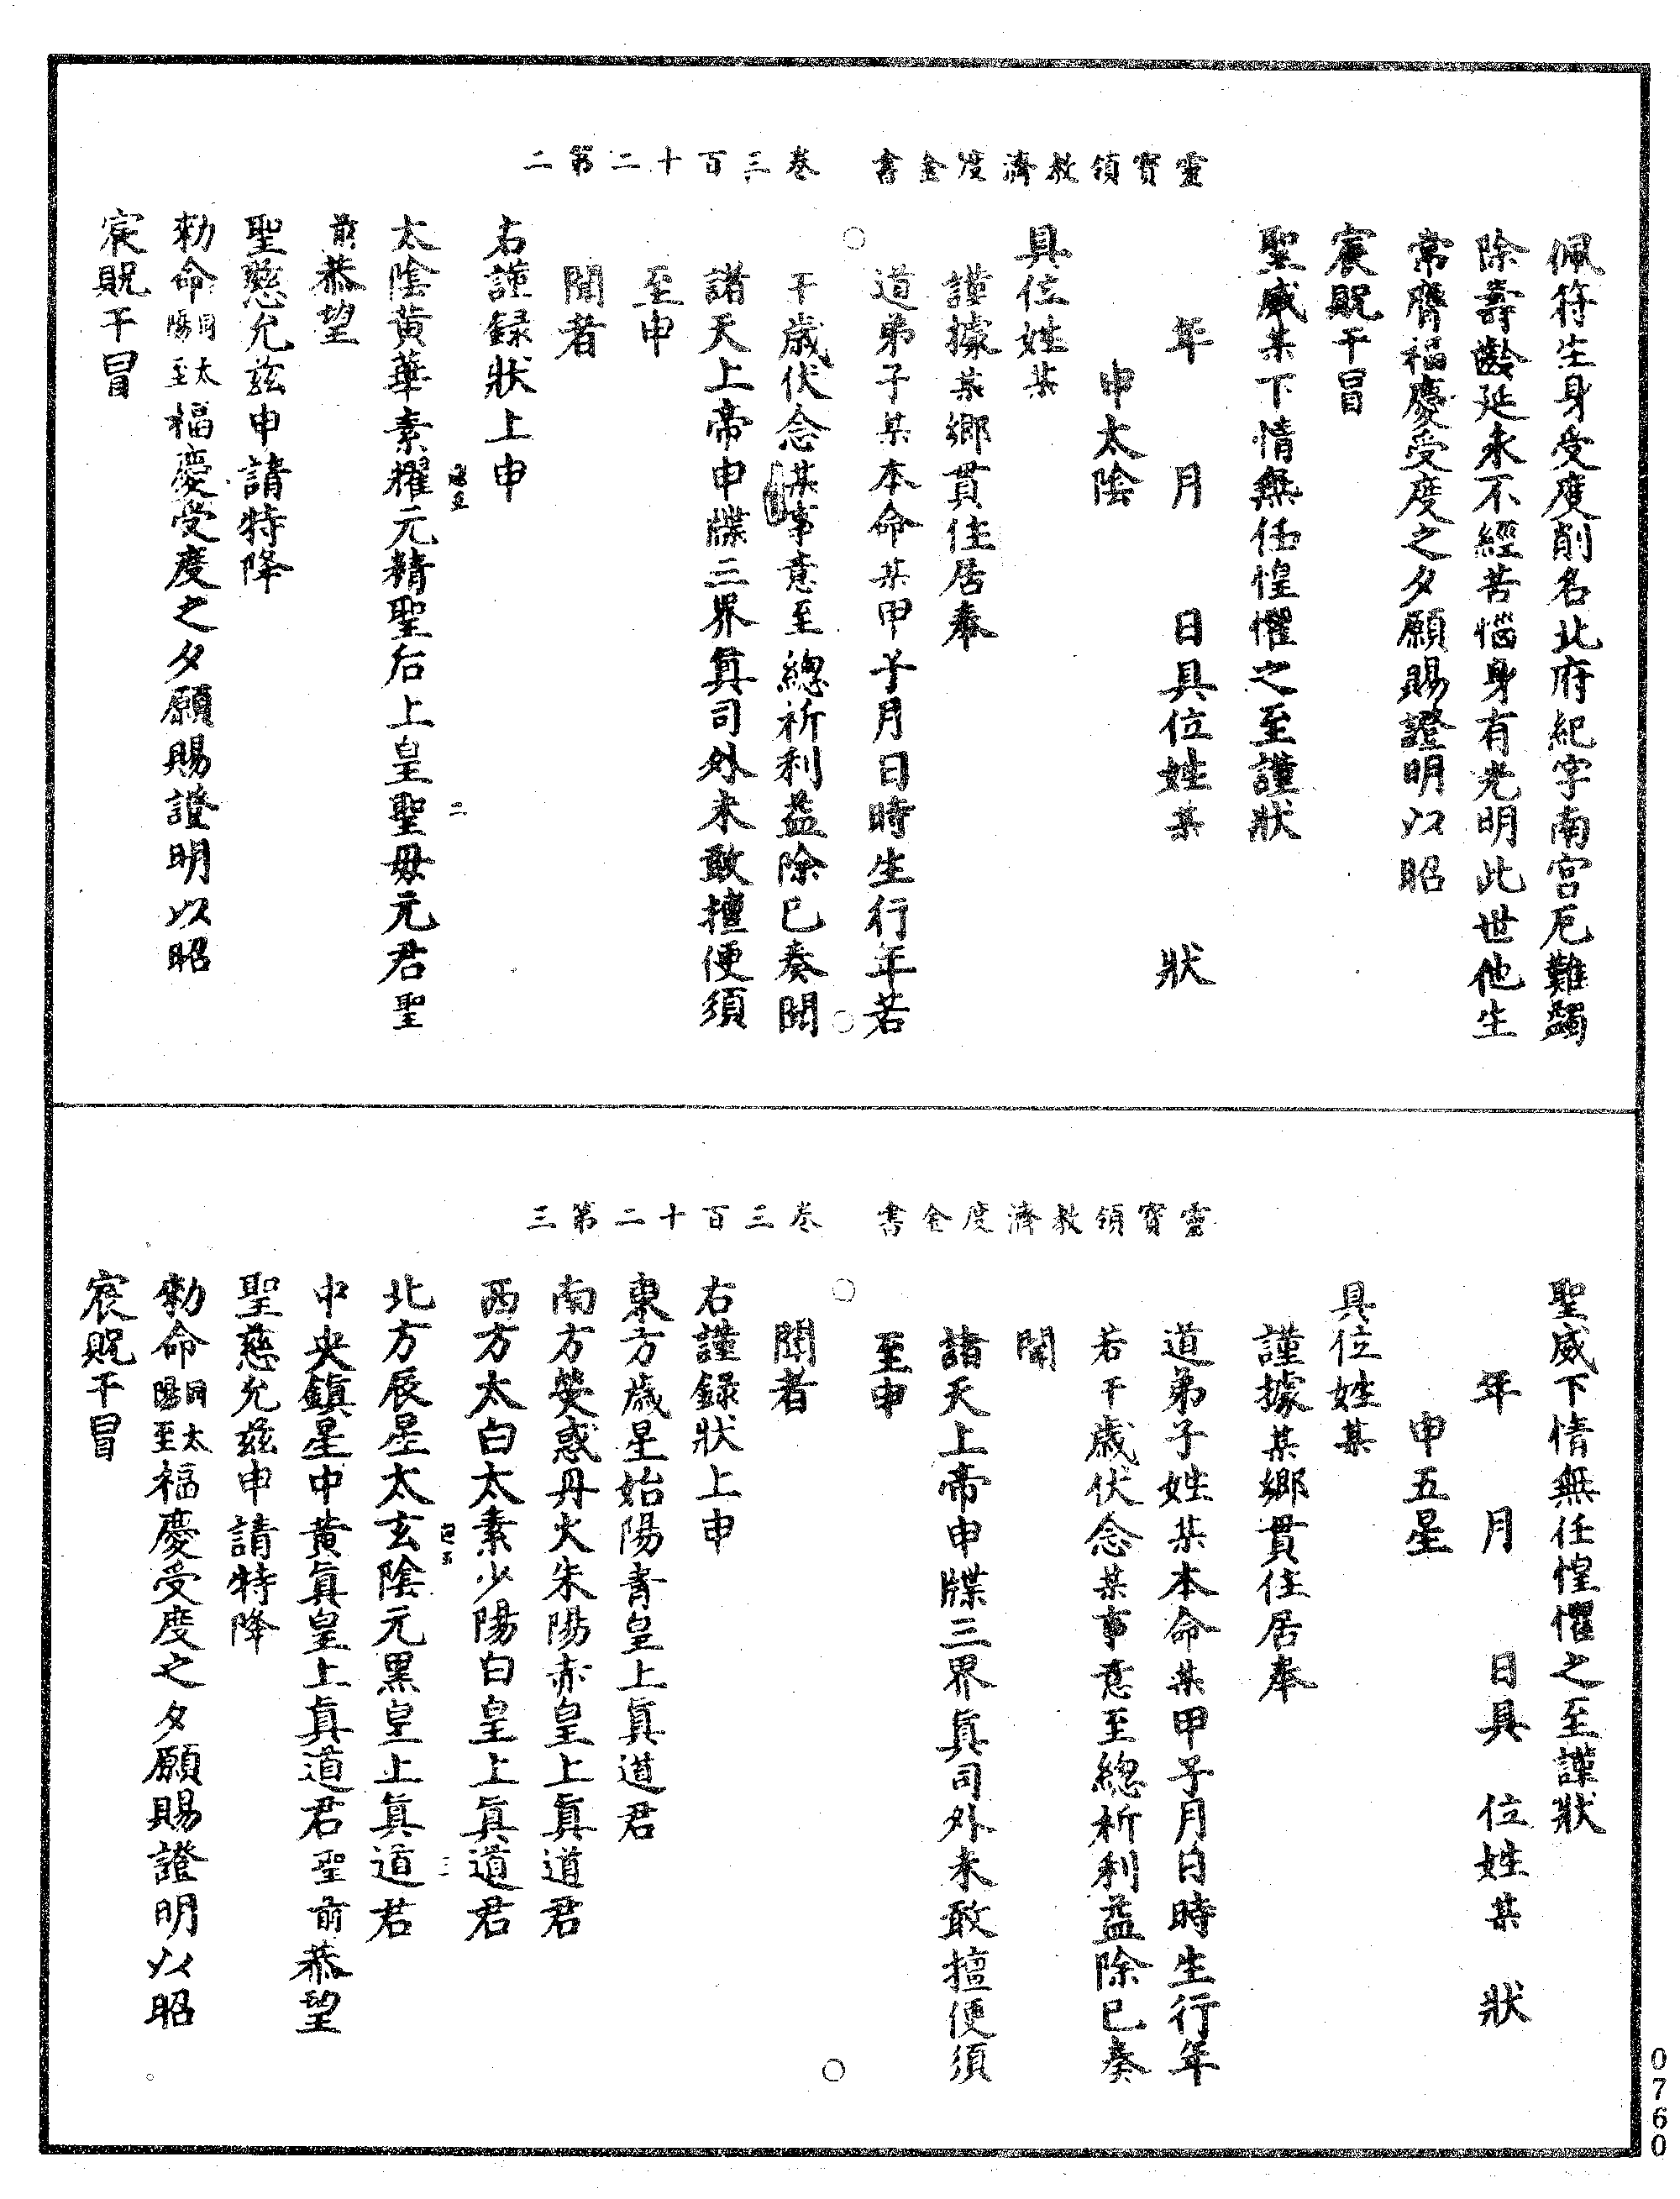 靈寶領教濟度金書　卷三百十二第二
佩符生身受度削名北府紀字南宮厄難蠲
除壽齡延永不經苦惱身有光明此世他生
常膺福慶受度之夕願賜證明以昭
宸貺干冒
聖威某下情無任惶懼之至謹狀
年　月　日具位姓某　狀
申太陰
具位姓某
謹據某鄉貫住居奉
道弟子某本命某甲子月日時生行年若
干歲伏念某事意至總祈利益除已奏聞
諸天上帝申牒三界真司外未敢擅便須
至申
聞者
右謹録狀上申
太陰黃華素耀元精聖后上皇聖母元君聖
前恭望
聖慈允兹申請特降
勑命同太陽至福慶受度之夕願賜證明以昭
宸貺干冒
二
靈寶領教濟度金書　卷三百十二第三
聖威下情無任惶懼之至謹狀
年　月　日具　位姓某　狀
申五星
具位姓某
謹據某鄉貫住居奉
道弟子姓某本命某甲子月日時生行年
若干歲伏念某事意至總祈利益除已奏
聞
諸天上帝申牒三界真司外未敢擅便須
至申
聞者
右謹録狀上申
東方歲星始陽青皇上真道君
南方熒惑丹火朱陽赤皇上真道君
西方太白太素少陽白皇上真道君
北方辰星太玄陰元黑皇上真道君
中央鎮星中黃真皇上真道君聖前恭望
聖慈允兹申請特降
勑命同太陽至福慶受度之夕願賜證明以昭
宸貺干冒
三
0760